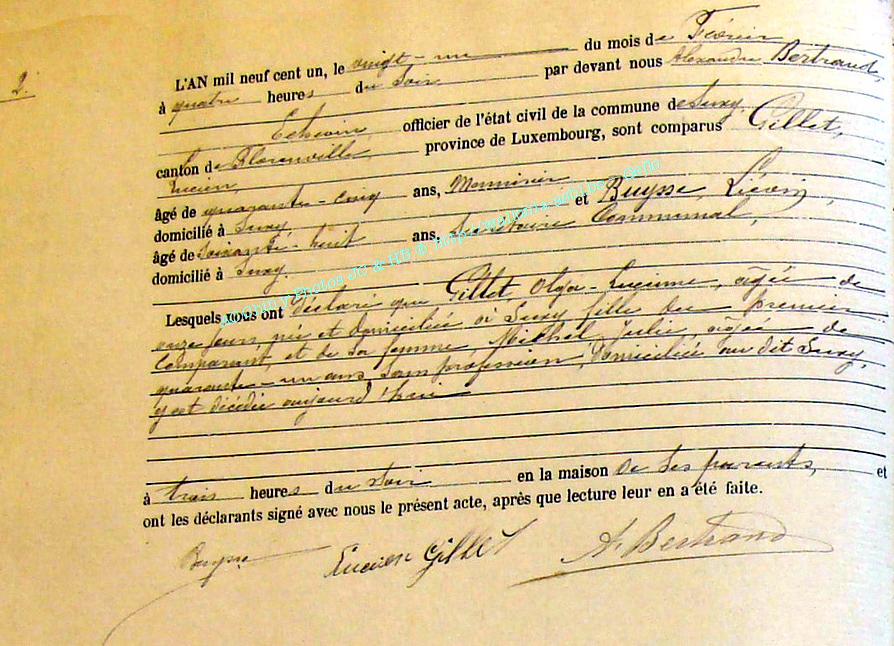 2.
L'AN mil neuf cent un, le vingt-un du mois de Février
à quatre heures du soir par devant nous Alexandre Bertrand,
Echevin, officier de l'état civil de la commune de Suxy,
canton de Florenville, province de Luxembourg, sont comparus Gillet,
Lucien,
âgé de quarante-cinq ans, Menuisier
domicilié à Suxy, et Buysse, Liévin,
âgé de soixante-huit ans, Secrétaire Communal,
domicilié à Suxy.
Lesquels nous ont déclaré que Gillet, Olga-Lucienne, âgée de
onze jours, née et domiciliée à Suxy fille du premier
Comparant, et de sa femme, Michel, Julie âgée de
quarante-un ans, sans profession, domiciliée au dit Suxy,
y est décédée aujourd'hui
à trois heures du soir en la maison de ses parents, et
ont les déclarants signé avec nous le présent acte, après que lecture leur en a été faite.
Buysse Lucien Gillet A. Bertrand